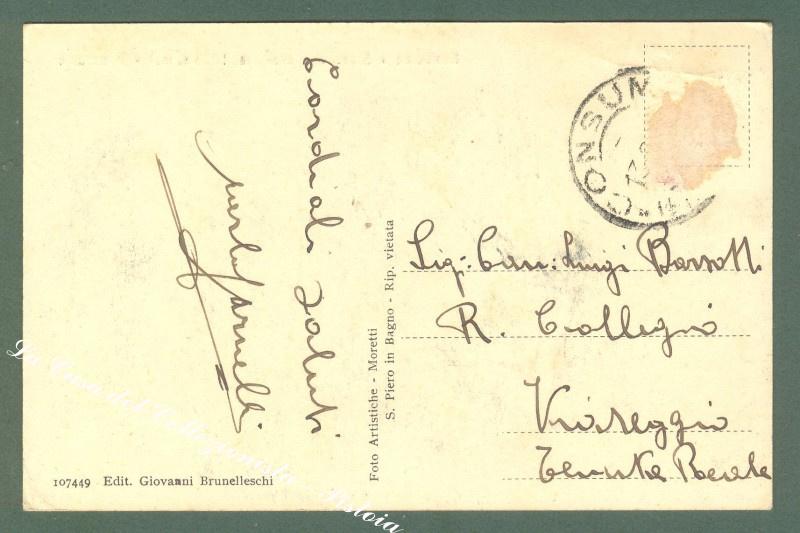 Cordiali Saluti
CONSUM
Foto Artistiche - Moretti
S. Piero in Bagno - Rip. vietata
Sig: Can: Luigi Barsotti
R. Collegio
Viareggio
Tenuta Reale
107449 Edit. Giovanni Brunelleschi
La Casa del Collezionista - Pistoia